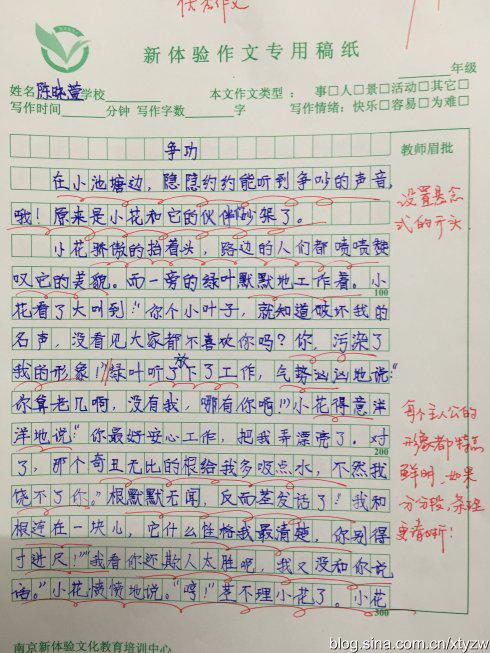 优秀作文
新体验作文专用稿纸
年级
姓名 陈咏萱 学校 本文作文类型: 事□人□景□活动□其它□
写作时间 分钟 写作字数 字 写作情绪: 快乐□容易□为难□
争功
教师眉批
在小池塘边,隐隐约约能听到争吵的声音,
哦!原来是小花和它的伙伴吵架了。
设置悬念
式的开头
小花骄傲的抬着头,路边的人们都啧啧赞
叹它的美貌。而一旁的绿叶默默地工作着。小
100
花看了大叫到:“你个小叶子,就知道破坏我的
名声,没看见大家都不喜欢你吗?你,污染了
我的形象!”绿叶听了放下了工作,气势汹汹地说:“
你算老几啊,没有我,哪有你啊!”小花得意洋
洋地说:“你最好安心工作,把我弄漂亮了。对
200
了,那个奇丑无比的根给我多吸点水,不然我
饶不了你。”根默默无闻,反而茎发话了:“我和
根连在一块儿,它什么性格我最清楚,你别得
寸进尺!”“我看你还欺人太胜吧,我又没和你说
话。”小花愤愤地说。“哼!”茎不理小花了。小花
300
每个主人公的
形象都特点
鲜明,如果
分分段,条理
更清晰!
南京新体验文化教育培训中心
blog.sina.com.cn/xtyzw